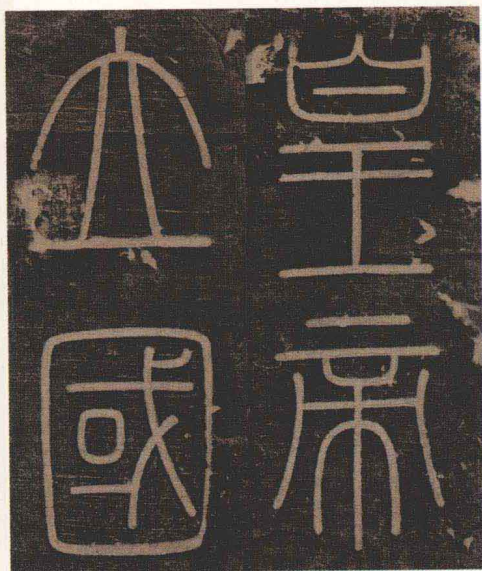 皇帝
立國